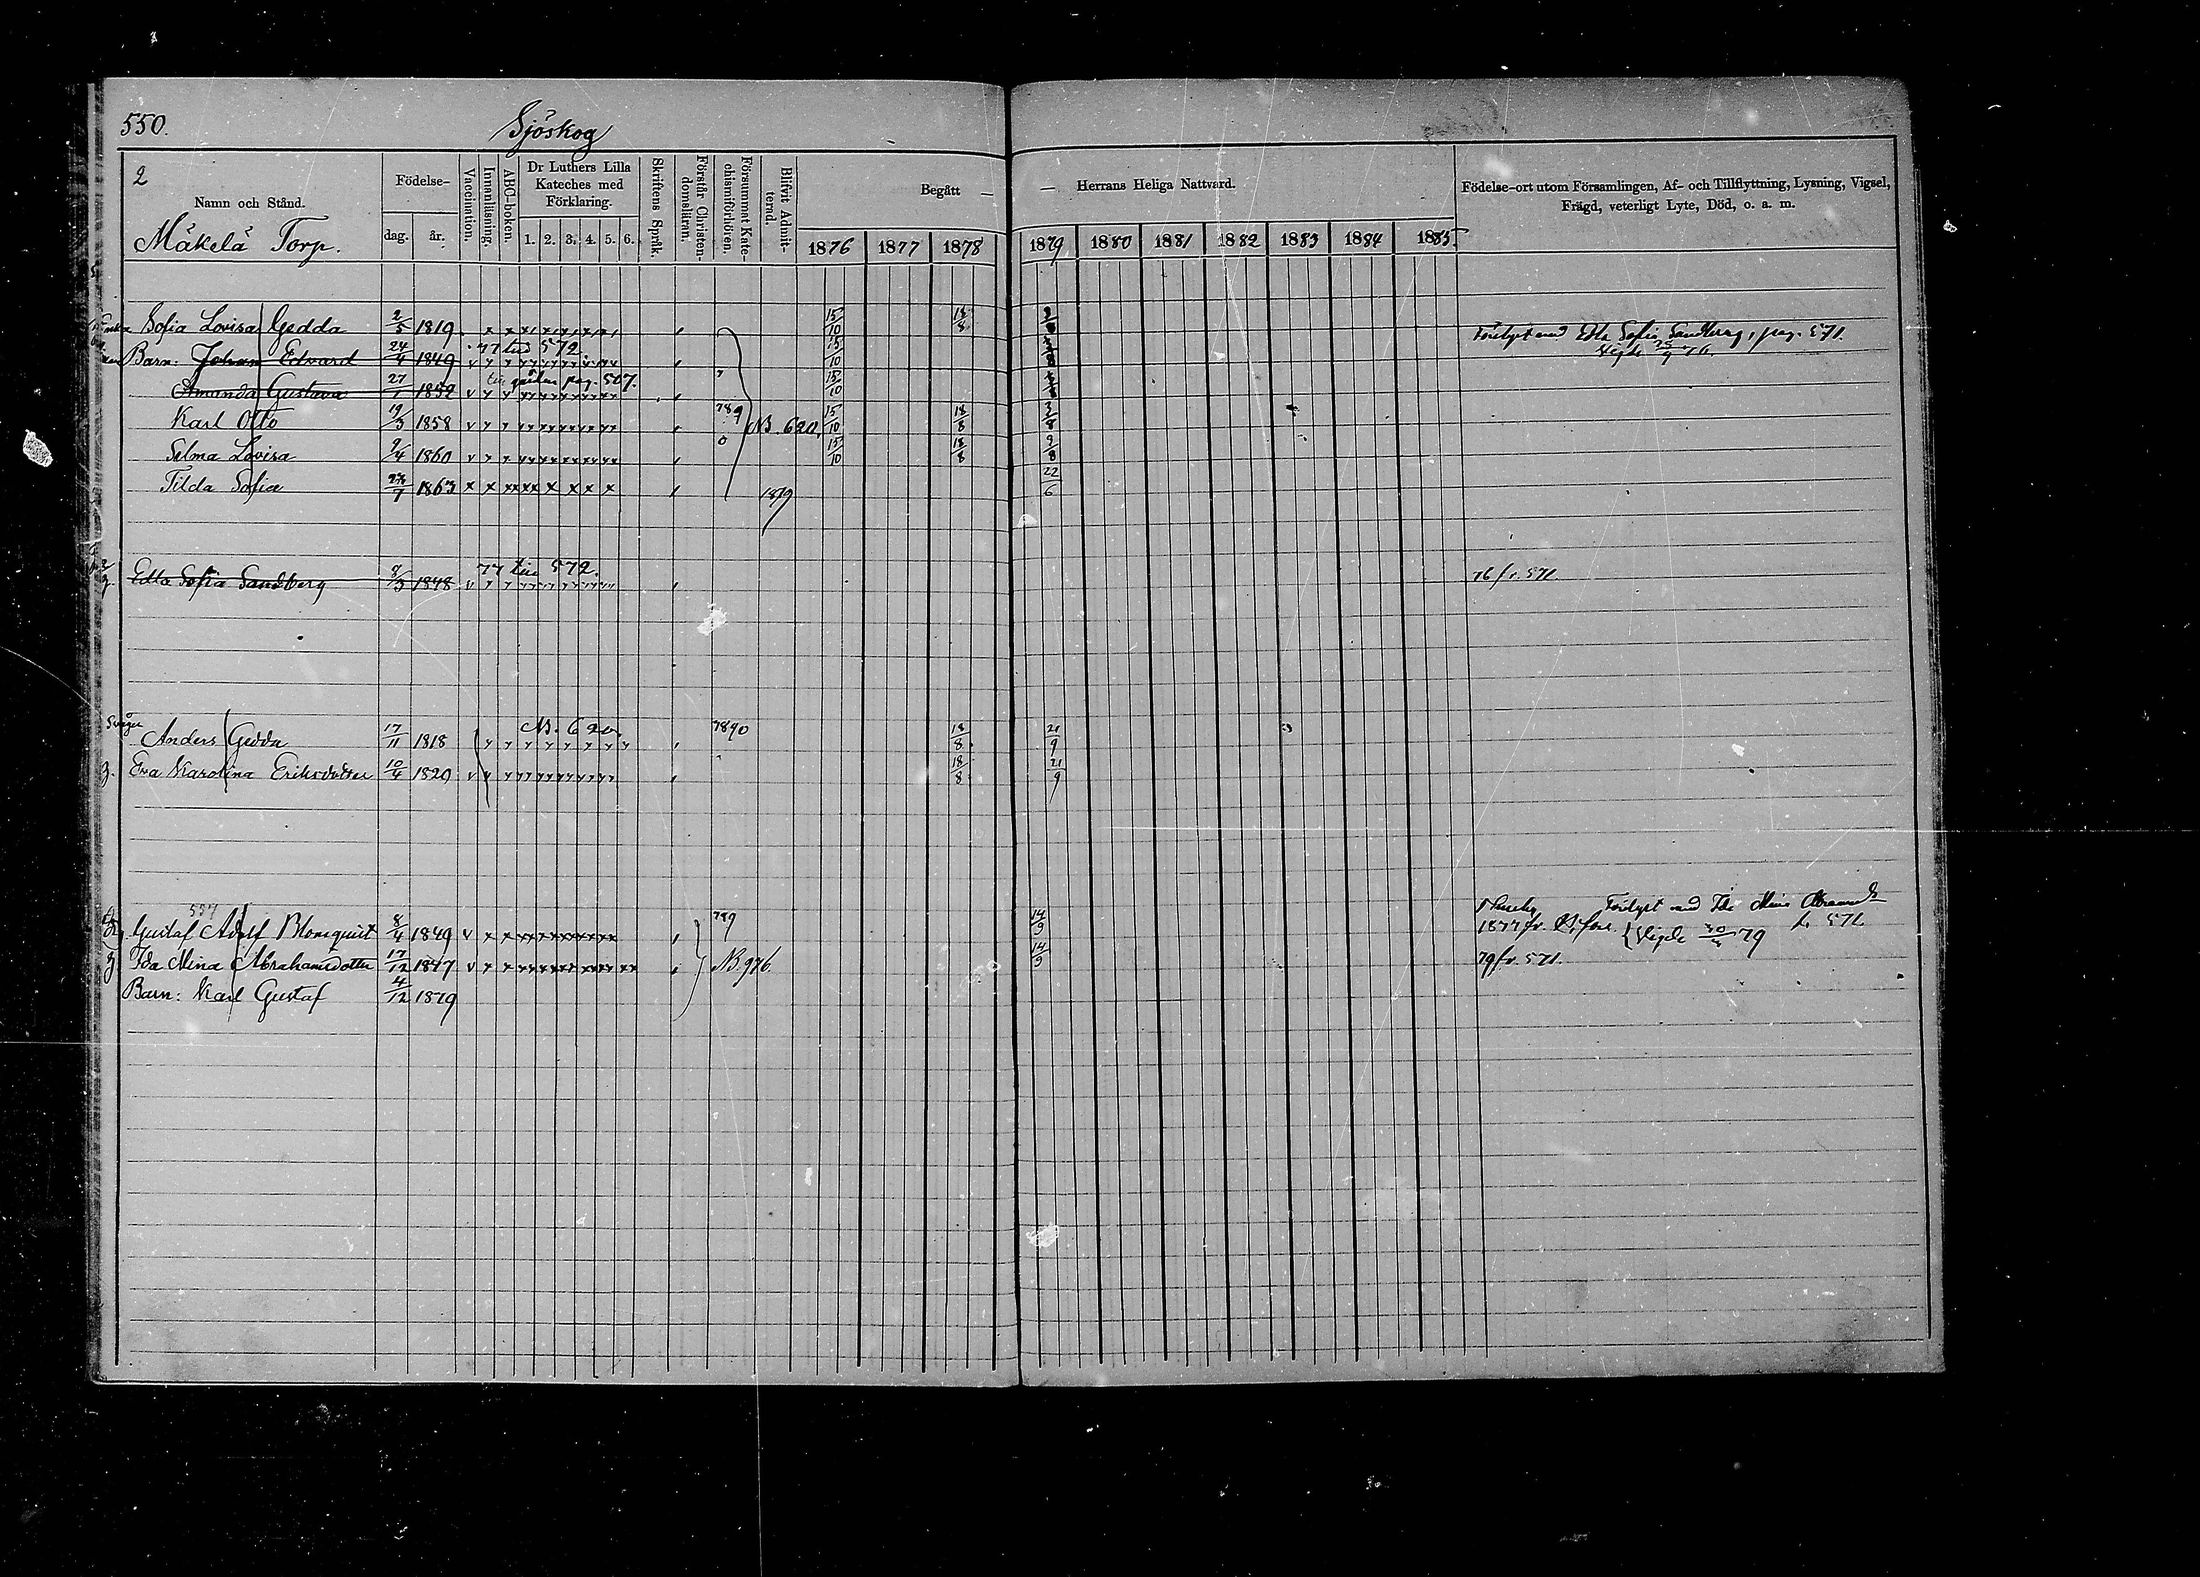 550.
Sjöskog
2
Namn och Stånd.
Mäkelä Torp.
Födelse-
dag. år.
Vaccination.
Innanläsning.
ABC-boken.
Dr Luthers Lilla
Kateches med
Förklaring.
1. 2. 3. 4. 5. 6.
Skriftens Språk.
Förstår Christen-
domsläran.
Försummat Kate-
chismiförhören.
Blifvit Admit-
terad.
Begått —
1876 1877 1878
— Herrans Heliga Nattvard.
1879 1880 1881 1882 1883 1884 1885
Födelse-ort utom Församlingen, Af- och Tillflyttning, Lysning, Vigsel,
Frägd, veterligt Lyte, Död, o. a. m.
Sofia Lovisa Gedda 2/5 1819 15/10 18/8
Barn: Johan Edvard 24/4 1849 77 till 572 15/10 Edla Sofia Sandberg, pag. 571.
Amanda Gustava 27/1 1852 pag. 507. 15/10
Karl Otto 19/3 1858 789 NB. 620. 15/10 18/8
Selma Lovisa 9/4 1860 0 15/10 18/8 9/8
Tilda Sofia 1863 1879 22/6
Edla Sofia Sandberg 8/3 1848 77 till 572. 76 fr. 571.
Svåger
Anders Gedda 17/11 1818 NB. 620. 7890 18/8 21/9
Eva Karolina Eriksdotter 10/4 1829 18/8 21/9
557
Gustaf Adolf Blomquist 8/4 1849 789 14/9 1877 fr. Vigde 79
Ida Mina Abrahamsdotter 17/12 1847 NB. 976. 14/9 79 fr. 571.
Barn: Karl Gustaf 4/12 1879